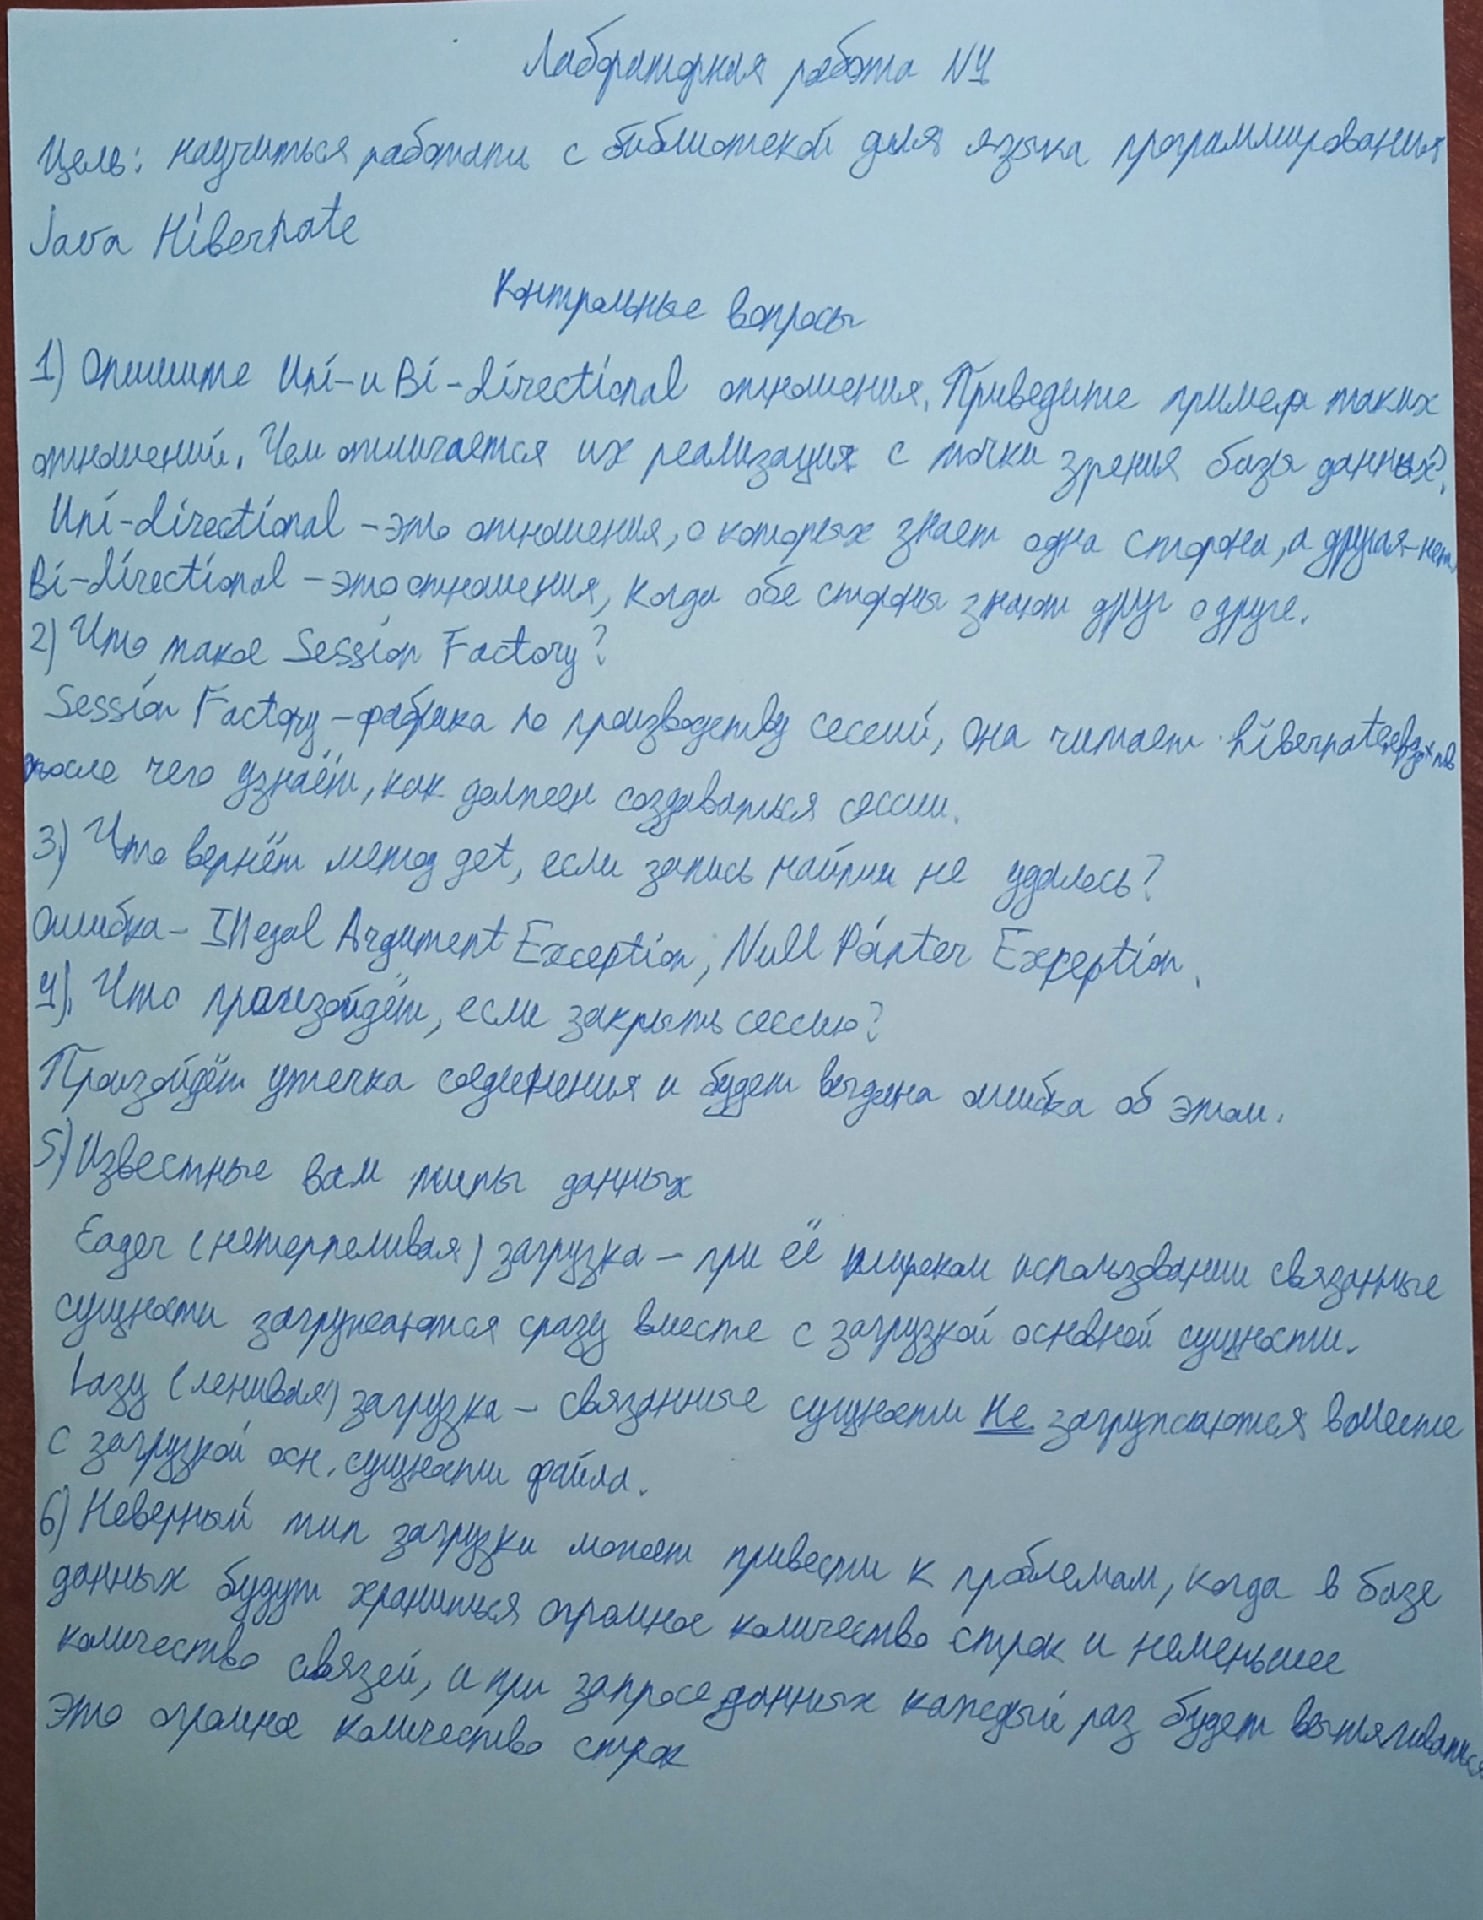 Лабораторная работа №1
Цель: научиться работать с библиотекой для языка программирования
Java Hibernate
Контрольные вопросы
1) Опишите Uni- и Bi-directional отношения. Приведите примеры таких
отношений. Чем отличается их реализация с точки зрения базы данных?
Uni-directional - это отношения, о которых знает одна сторона, а другая - нет.
Bi-directional - это отношения, когда обе стороны знают друг о друге.
2) Что такое Session Factory?
Session Factory - фабрика по производству сессий, она читает hibernate.cfg.xml
после чего узнаёт, как должен создаваться сессии.
3) Что вернёт метод get, если запись найти не удалось?
Ошибка - Illegal Argument Exception, Null Pointer Exception.
4). Что произойдёт, если закрыть сессию?
Произойдёт утечка соединения и будет выдана ошибка об этом.
5) Известные вам типы данных
Eager (нетерпеливая) загрузка - при её использовании связанные
сущности загружаются сразу вместе с загрузкой основной сущности.
Lazy (ленивая) загрузка - связанные сущности не загружаются вместе
с загрузкой осн. сущности файла.
6) Неверный тип загрузки может привести к проблемам, когда в базе
данных будут храниться огромное количество строк и неменьшее
количество связей, и при запросе данных каждый раз будет вытягиваться
это огромное количество строк